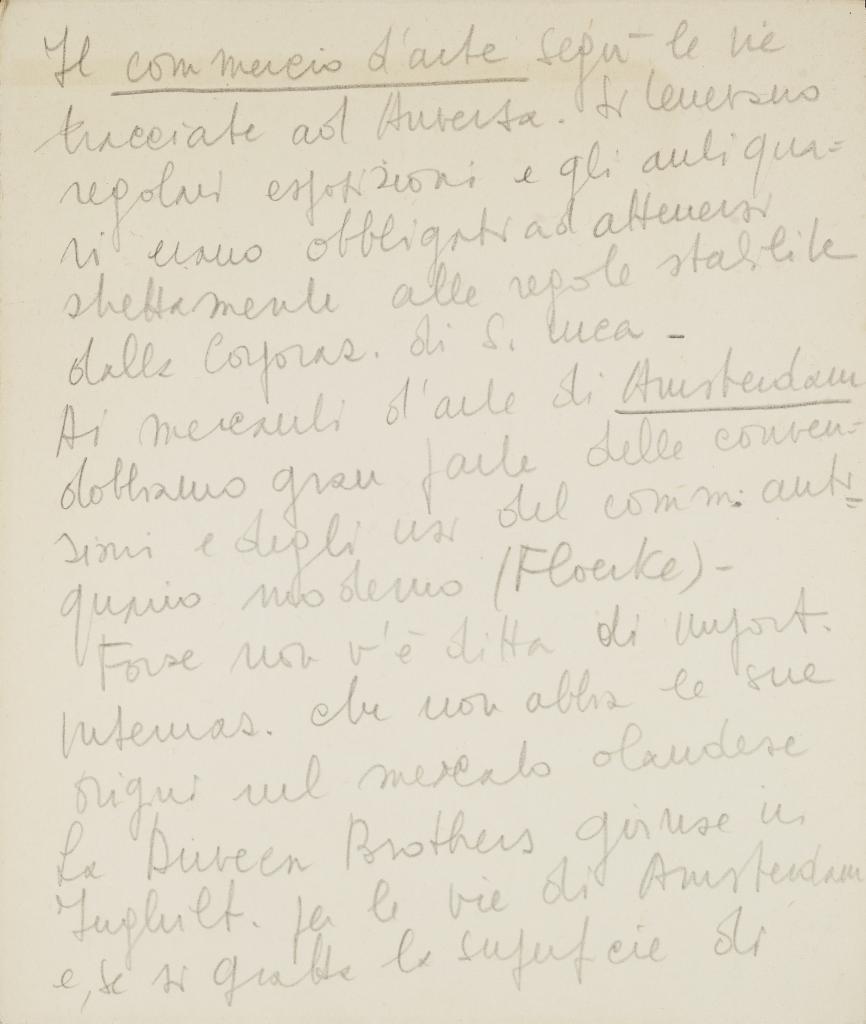 Il commercio d'arte seguì le vie
tracciate ad Anversa. Si tenevano
regolari esposizioni e gli antiqua=
ri erano obbligati ad attenersi
strettamente alle regole stabilite
dalla Corporaz. di S. Luca -
Ai mercanti d'arte di Amsterdam
dobbiamo gran parte delle conven=
zioni e degli usi del comm. anti=
quario moderno (Floerke) -
Forse non v'è ditta di import.
internaz. che non abbia le sue
origini nel mercato olandese
La Duveen Brothers giunse in
Inghilt. per le vie di Amsterdam
e, se si gratta la superficie di